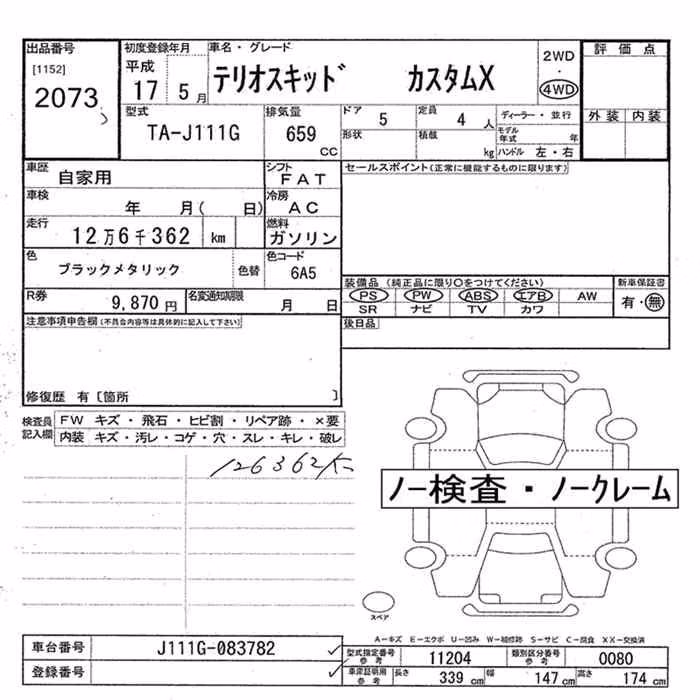 出品番号
[1152]
2073
初度登録年月
平成
17 5月
車名・グレード
テリオスキッド カスタムX
2WD
・
4WD
評価点
外装 内装
型式
TA-J111G
排気量
659
cc
ドア 5
定員 4 人
形状
積載 kg
ディーラー・並行
モデル年式 年
ハンドル 左・右
車歴
自家用
シフト
FAT
セールスポイント(正常に機能するものに限ります)
車検
年 月( 日)
冷房
AC
走行
12万6千362 km
燃料
ガソリン
色
ブラックメタリック
色替
色コード
6A5
装備品 (純正品に限り○をつけてください)
PS PW ABS エアB AW
SR ナビ TV カワ
新車保証書
有・無
R券
9,870 円
名変通知期限
月 日
後日品
注意事項申告欄(不具合内容等は具体的に記入して下さい)
修復歴 有〔箇所 〕
検査員記入欄
FW キズ・飛石・ヒビ割・リペア跡・×要
内装 キズ・汚レ・コゲ・穴・スレ・キレ・破レ
126362K
ノー検査・ノークレーム
スペア
A-キズ E-エクボ U-凹み W-補修跡 S-サビ C-腐食 XX-交換済
車台番号
J111G-083782
登録番号
型式指定番号
参考
11204
類別区分番号
参考
0080
車庫証明用
参考
長さ 339 cm
幅 147 cm
高さ 174 cm